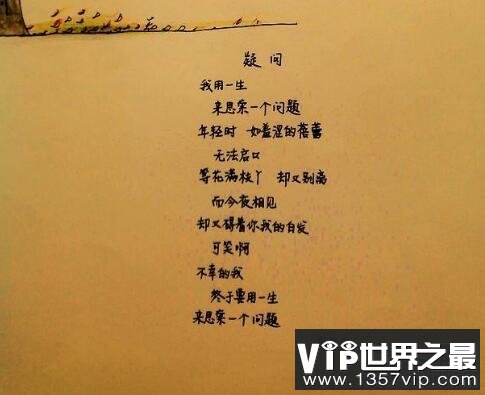 疑问
我用一生
来思索一个问题
年轻时 如羞涩的蓓蕾
无法启口
等花满枝丫 却又别离
而今夜相见
却又碍着你我的白发
可笑啊
不幸的我
终于要用一生
来思索一个问题
VIP世界之最
www.1357vip.com